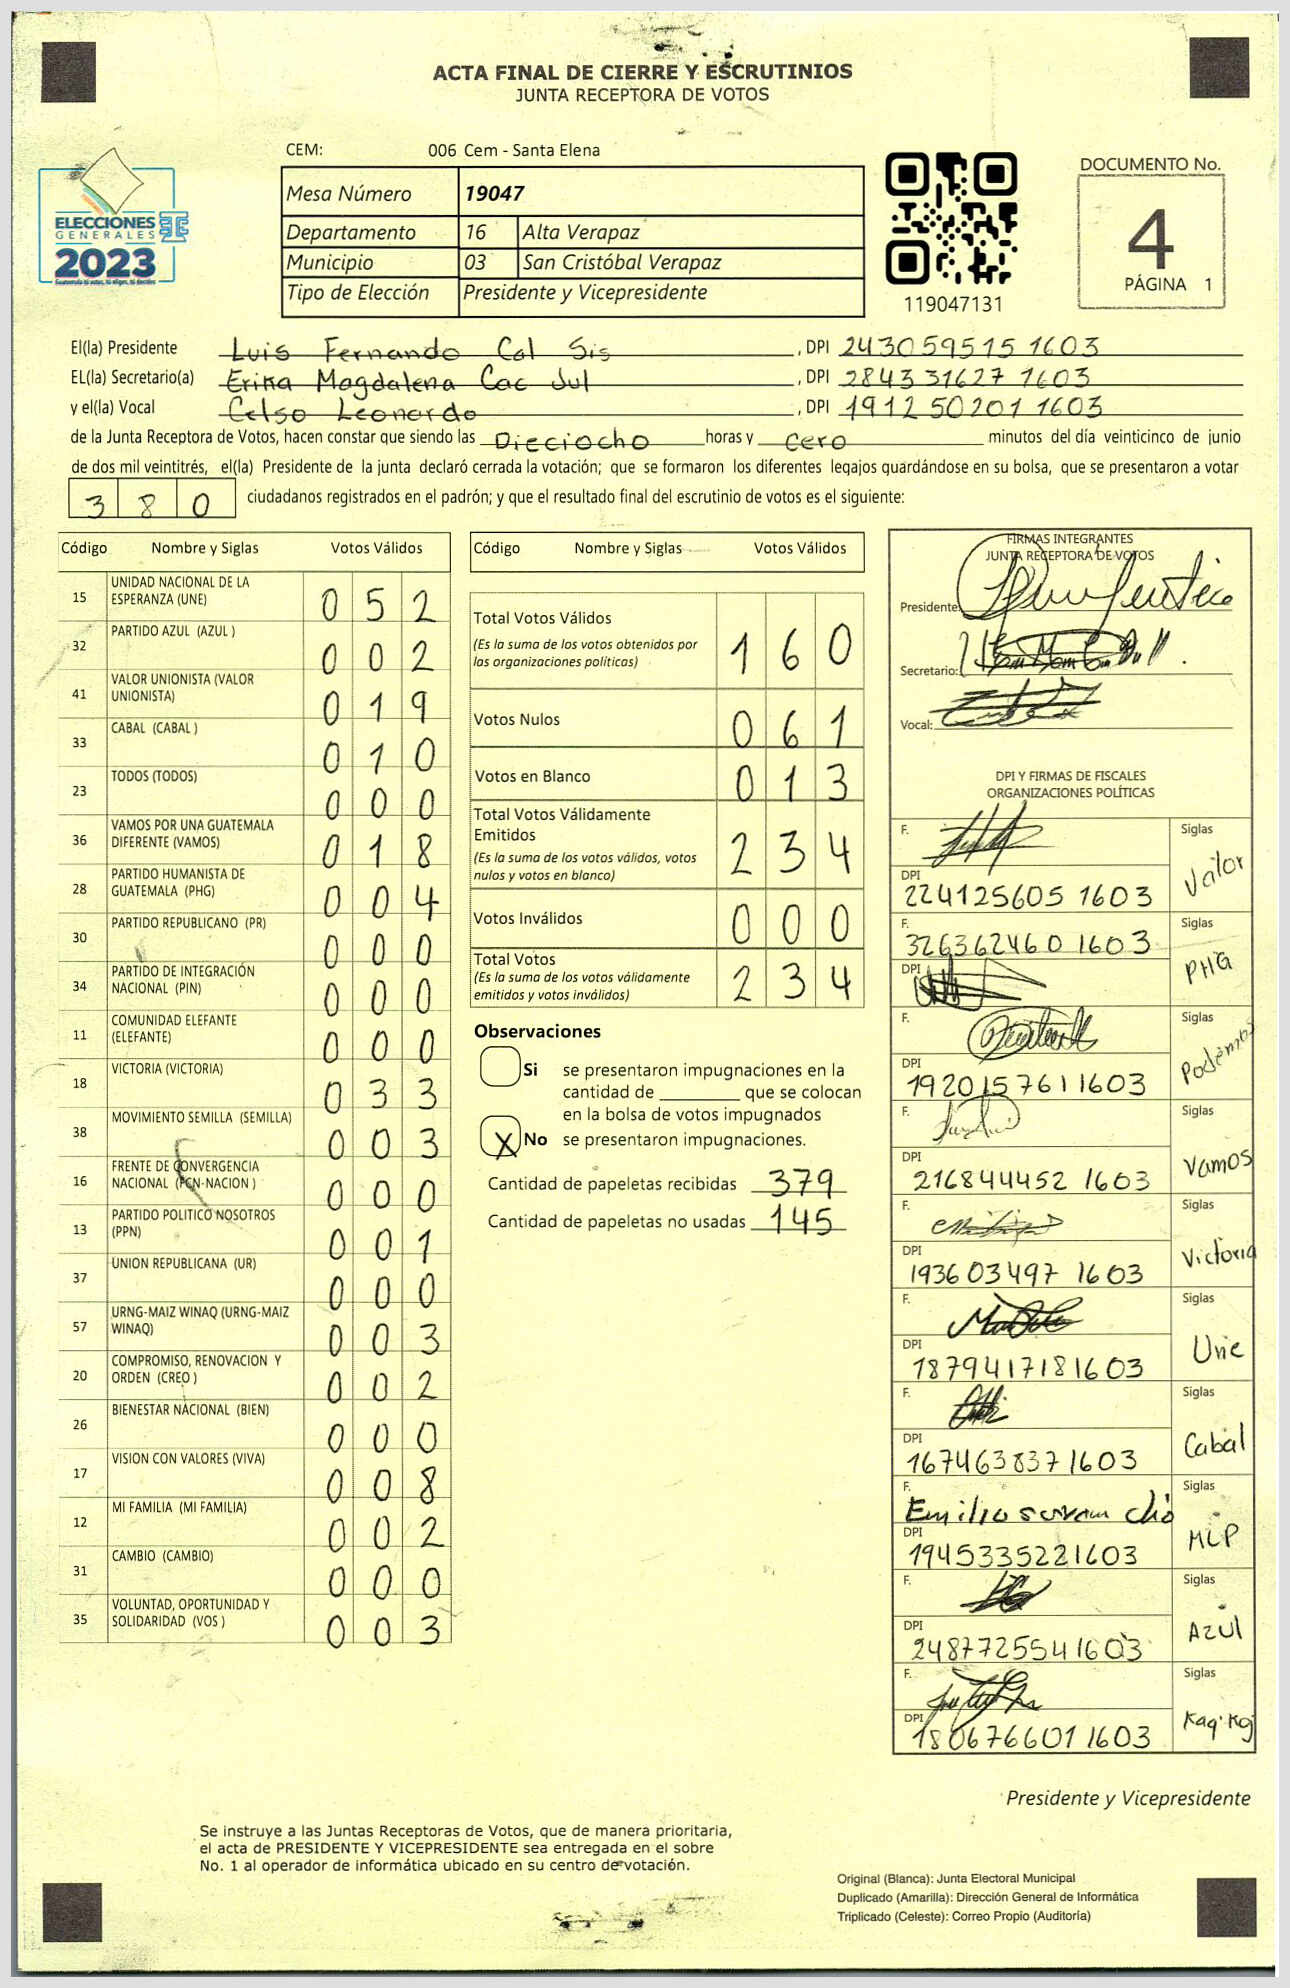 ACTA FINAL DE CIERRE Y ESCRUTINIOS
JUNTA RECEPTORA DE VOTOS
CEM: 006 Cem - Santa Elena
ELECCIONES
GENERALES
2023
Mesa Número 19047
Departamento 16 Alta Verapaz
Municipio 03 San Cristóbal Verapaz
Tipo de Elección Presidente y Vicepresidente
119047131
DOCUMENTO No.
4
PÁGINA 1
El(la) Presidente Luis Fernando Cal Sis , DPI 243059515 1603
EL(la) Secretario(a) Erika Magdalena Cac Jul , DPI 284331627 1603
y el(la) Vocal Celso Leonardo , DPI 191250201 1603
de la Junta Receptora de Votos, hacen constar que siendo las Dieciocho horas y cero minutos del día veinticinco de junio
de dos mil veintitrés, el(la) Presidente de la junta declaró cerrada la votación; que se formaron los diferentes legajos guardándose en su bolsa, que se presentaron a votar
380 ciudadanos registrados en el padrón; y que el resultado final del escrutinio de votos es el siguiente:
Código Nombre y Siglas Votos Válidos
15 UNIDAD NACIONAL DE LA ESPERANZA (UNE) 052
32 PARTIDO AZUL (AZUL ) 002
41 VALOR UNIONISTA (VALOR UNIONISTA) 019
33 CABAL (CABAL ) 010
23 TODOS (TODOS) 000
36 VAMOS POR UNA GUATEMALA DIFERENTE (VAMOS) 018
28 PARTIDO HUMANISTA DE GUATEMALA (PHG) 004
30 PARTIDO REPUBLICANO (PR) 000
34 PARTIDO DE INTEGRACIÓN NACIONAL (PIN) 000
11 COMUNIDAD ELEFANTE (ELEFANTE) 000
18 VICTORIA (VICTORIA) 033
38 MOVIMIENTO SEMILLA (SEMILLA) 003
16 FRENTE DE CONVERGENCIA NACIONAL (FCN-NACION ) 000
13 PARTIDO POLITICO NOSOTROS (PPN) 001
37 UNION REPUBLICANA (UR) 000
57 URNG-MAIZ WINAQ (URNG-MAIZ WINAQ) 003
20 COMPROMISO, RENOVACION Y ORDEN (CREO ) 002
26 BIENESTAR NACIONAL (BIEN) 000
17 VISION CON VALORES (VIVA) 008
12 MI FAMILIA (MI FAMILIA) 002
31 CAMBIO (CAMBIO) 000
35 VOLUNTAD, OPORTUNIDAD Y SOLIDARIDAD (VOS ) 003
Código Nombre y Siglas Votos Válidos
Total Votos Válidos 160
(Es la suma de los votos obtenidos por
las organizaciones políticas)
Votos Nulos 061
Votos en Blanco 013
Total Votos Válidamente
Emitidos 234
(Es la suma de los votos válidos, votos
nulos y votos en blanco)
Votos Inválidos 000
Total Votos 234
(Es la suma de los votos válidamente
emitidos y votos inválidos)
Observaciones
Si se presentaron impugnaciones en la
cantidad de ________ que se colocan
en la bolsa de votos impugnados
X No se presentaron impugnaciones.
Cantidad de papeletas recibidas 379
Cantidad de papeletas no usadas 145
FIRMAS INTEGRANTES
JUNTA RECEPTORA DE VOTOS
Presidente:
Secretario:
Vocal:
DPI Y FIRMAS DE FISCALES
ORGANIZACIONES POLÍTICAS
F. Siglas
DPI 224125605 1603 Valor
F. 326362460 1603 Siglas
DPI PHG
F. Siglas
DPI 192015761 1603 Podemos
F. Siglas
DPI 216844452 1603 Vamos
F. Siglas
DPI 193603497 1603 Victoria
F. Siglas
DPI 187941718 1603 Une
F. Siglas
DPI 167463837 1603 Cabal
F. Emilio Siglas
DPI 194533522 1603 MLP
F. Siglas
DPI 248772554 1603 Azul
F. Siglas
DPI 180676601 1603
Presidente y Vicepresidente
Se instruye a las Juntas Receptoras de Votos, que de manera prioritaria,
el acta de PRESIDENTE Y VICEPRESIDENTE sea entregada en el sobre
No. 1 al operador de informática ubicado en su centro de votación.
Original (Blanca): Junta Electoral Municipal
Duplicado (Amarilla): Dirección General de Informática
Triplicado (Celeste): Correo Propio (Auditoría)